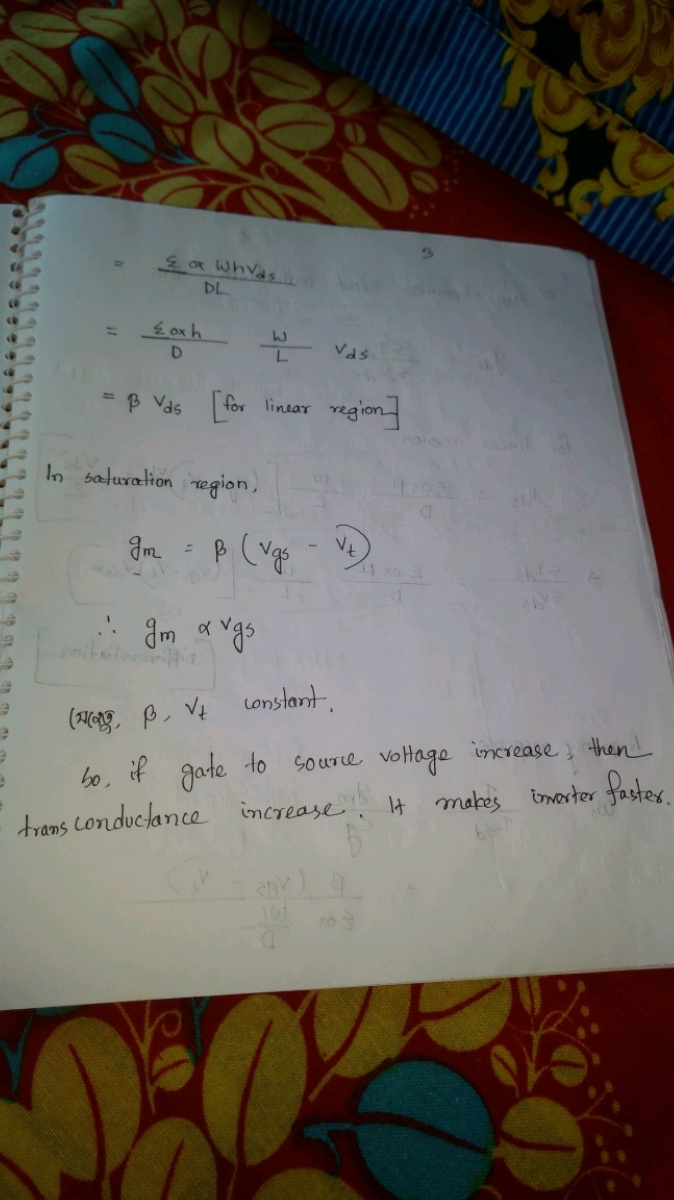 3
= Σ ox Whvds / DL
= Σoxh / D W / L Vds
= β Vds [for linear region]
In saturation region,
gm = β (Vgs - Vt)
∴ gm ∝ Vgs
(যেহেতু, β, Vt constant,
so, if gate to source voltage increase, then
transconductance increase. It makes inverter faster.